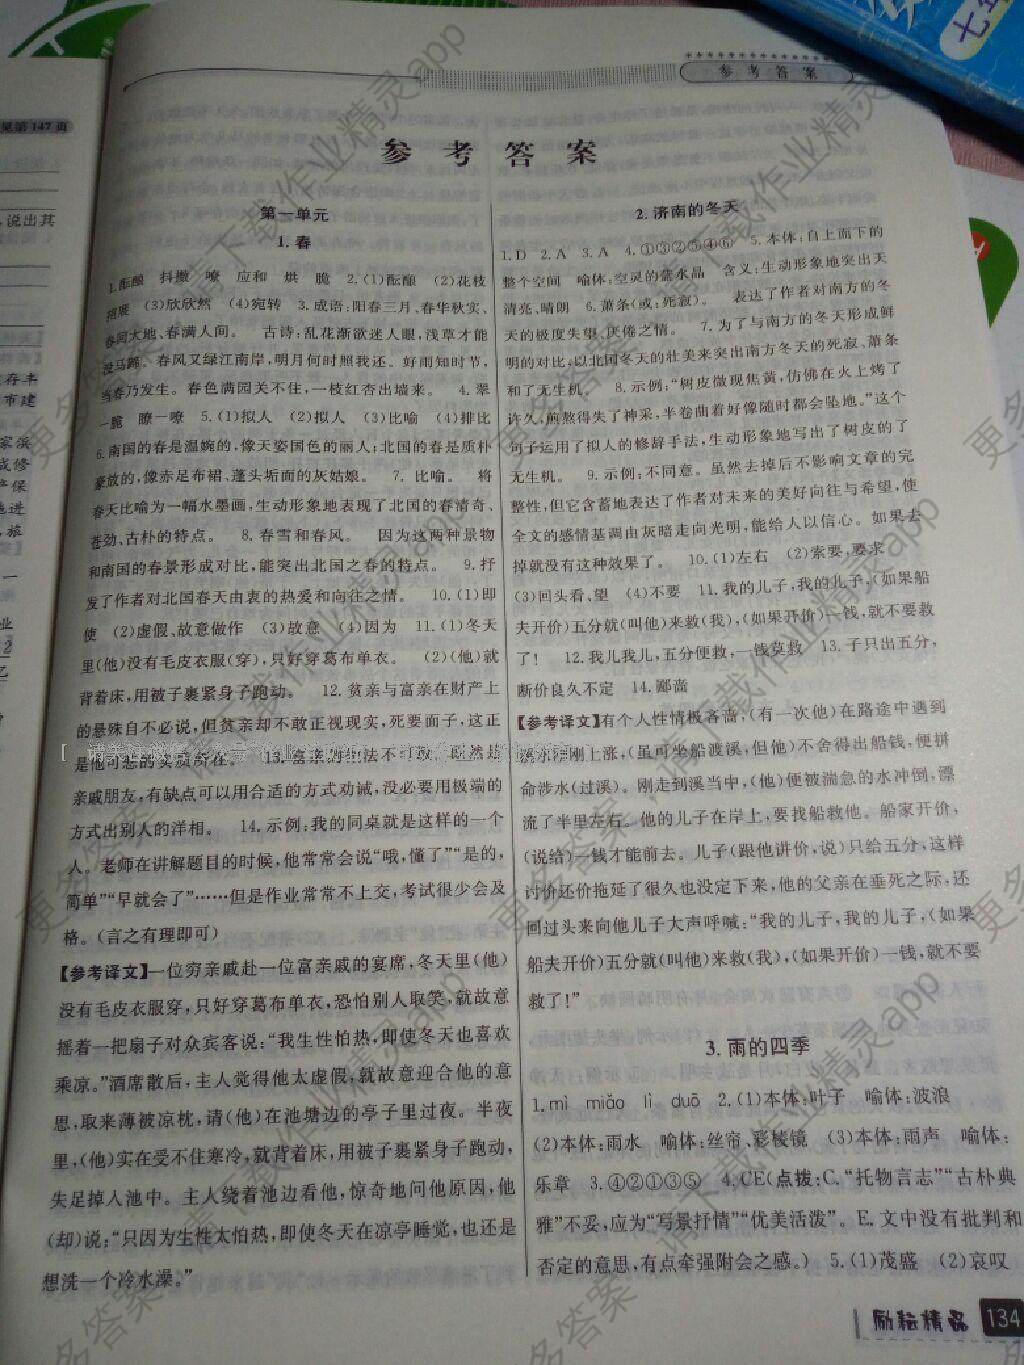 参考答案
参考答案
见第147页
说出其
第一单元
1.春
1.酝酿 抖擞 嘹 应和 烘 脆 2.(1)酝酿 (2)花枝
招展 (3)欣欣然 (4)宛转 3.成语:阳春三月、春华秋实、
春回大地、春满人间。 古诗:乱花渐欲迷人眼,浅草才能
没马蹄。春风又绿江南岸,明月何时照我还。好雨知时节,
当春乃发生。春色满园关不住,一枝红杏出墙来。 4.翠
—脆 瞭—嘹 5.(1)拟人 (2)拟人 (3)比喻 (4)排比
6.南国的春是温婉的,像天姿国色的丽人;北国的春是质朴
豪放的,像赤足布裙、蓬头垢面的灰姑娘。 7.比喻。 将
春天比喻为一幅水墨画,生动形象地表现了北国的春清奇、
苍劲、古朴的特点。 8.春雪和春风。 因为这两种景物
和南国的春景形成对比,能突出北国之春的特点。 9.抒
发了作者对北国春天由衷的热爱和向往之情。 10.(1)即
使 (2)虚假、故意做作 (3)故意 (4)因为 11.(1)冬天
里(他)没有毛皮衣服(穿),只好穿葛布单衣。 (2)(他)就
背着床,用被子裹紧身子跑动。 12.贫亲与富亲在财产上
的悬殊自不必说,但贫亲却不敢正视现实,死要面子,这正
是他可悲的实质所在。 13.富亲的做法不可取。既然是
亲戚朋友,有缺点可以用合适的方式劝诫,没必要用极端的
方式出别人的洋相。 14.示例:我的同桌就是这样的一个
人。老师在讲解题目的时候,他常常会说“哦,懂了”“是的,
简单”“早就会了”……但是作业常常不上交,考试很少会及
格。(言之有理即可)
【参考译文】一位穷亲戚赴一位富亲戚的宴席,冬天里(他)
没有毛皮衣服穿,只好穿葛布单衣,恐怕别人取笑,就故意
摇着一把扇子对众宾客说:“我生性怕热,即使冬天也喜欢
乘凉。”酒席散后,主人觉得他太虚假,就故意迎合他的意
思,取来薄被凉枕,请(他)在池塘边的亭子里过夜。半夜
里,(他)实在受不住寒冷,就背着床,用被子裹紧身子跑动,
失足掉入池中。主人绕着池边看他,惊奇地问他原因,他
(却)说:“只因为生性太怕热,即使冬天在凉亭睡觉,也还是
想洗一个冷水澡。”
2.济南的冬天
1.D 2.A 3.A 4.①③②⑤④⑥ 5.本体:自上面下的
整个空间 喻体:空灵的蓝水晶 含义:生动形象地突出天
清亮、晴朗 6.萧条(或:死寂)。 表达了作者对南方的冬
天的极度失望、厌倦之情。 7.为了与南方的冬天形成鲜
明的对比,以北国冬天的壮美来突出南方冬天的死寂、萧条
和了无生机。 8.示例:“树皮做现焦黄,仿佛在火上烤了
许久,煎熬得失了神采,半卷曲着好像随时都会坠地。”这个
句子运用了拟人的修辞手法,生动形象地写出了树皮的了
无生机。 9.示例:不同意。虽然去掉后不影响文章的完
整性,但它含蓄地表达了作者对未来的美好向往与希望,使
全文的感情基调由灰暗走向光明,能给人以信心。如果去
掉就没有这种效果了。 10.(1)左右 (2)索要,要求
(3)回头看、望 (4)不要 11.我的儿子,我的儿子,(如果船
夫开价)五分就(叫他)来救(我),(如果开价)一钱,就不要救
了! 12.我儿我儿,五分便救,一钱莫救 13.子只出五分,
断价良久不定 14.鄙啬
【参考译文】有个人性情极吝啬,(有一次他)在路途中遇到
溪水刚刚上涨,(虽可坐船渡溪,但他)不舍得出船钱,便拼
命涉水(过溪)。刚走到溪当中,(他)便被湍急的水冲倒,漂
流了半里左右。他的儿子在岸上,要找船救他。船家开价,
(说给)一钱才能前去。儿子(跟他讲价,说)只给五分,这样
讨价还价拖延了很久也没定下来,他的父亲在垂死之际,还
回过头来向他儿子大声呼喊:“我的儿子,我的儿子,(如果
船夫开价)五分就(叫他)来救(我),(如果开价)一钱,就不要
救了!”
3.雨的四季
1.mì miǎo lì duō 2.(1)本体:叶子 喻体:波浪
(2)本体:雨水 喻体:丝帘、彩棱镜 (3)本体:雨声 喻体:
乐章 3.④②①③⑤ 4.CE(点拨:C.“托物言志”“古朴典
雅”不妥,应为“写景抒情”“优美活泼”。E.文中没有批判和
否定的意思,有点牵强附会之感。) 5.(1)茂盛 (2)哀叹
励耘精品 134
更多答案,请下载作业精灵app